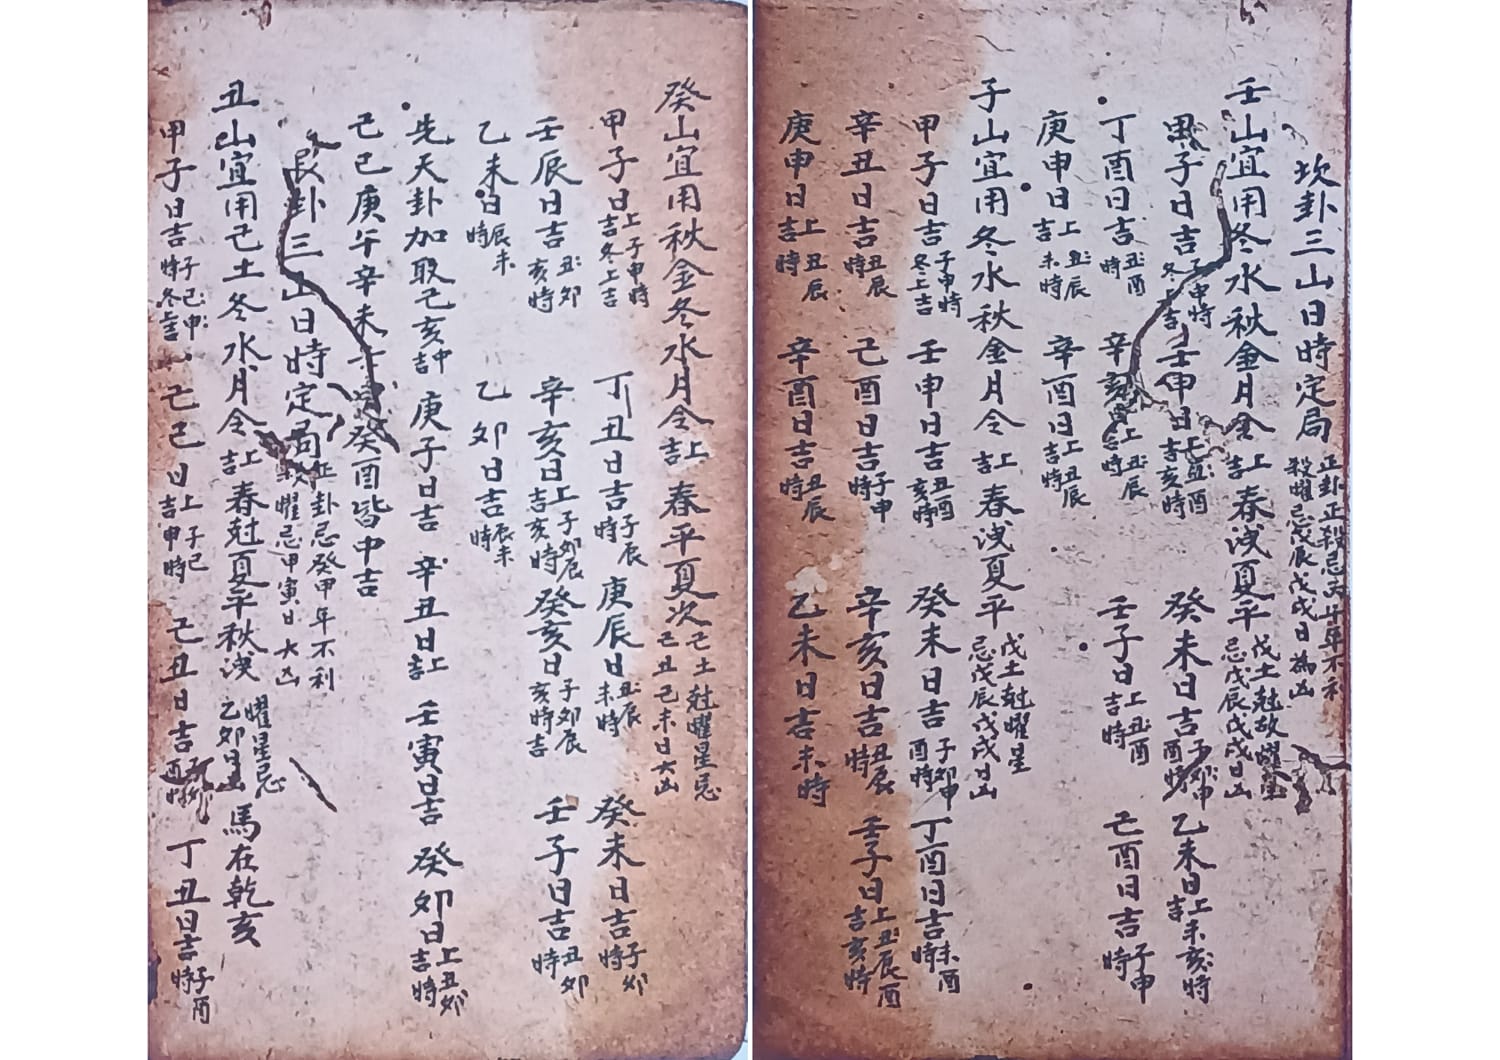 坎卦三山日時定局 正卦正殺忌 年不利 殺曜忌戊辰戊戌日為凶
壬山宜用冬水秋金月令上吉 春洩夏平 戊土尅故曜 忌戊辰戊戌日凶
甲子日吉 申時冬 吉 壬申日上吉 丑酉亥時 癸未日吉 子卯申酉時 乙未日上吉 未亥時
丁酉日吉 丑酉時 辛 上吉 丑辰時 壬子日上吉 丑酉時 己酉日吉 子申時
庚申日上吉 丑辰未時 辛酉日上吉 丑辰時
子山宜用冬水秋金月令上吉 春洩夏平 戊土尅曜星忌戊辰戊戌日凶
甲子日吉 子申時冬上吉 壬申日吉 丑酉亥時 癸未日吉 子卯申酉時 丁酉日吉 未酉時
辛丑日吉 丑辰時 己酉日吉 子申時 辛亥日吉 丑辰時 壬子日上吉 丑辰酉亥時
庚申日上吉 丑辰時 辛酉日吉 丑辰時 乙未日吉 未時
癸山宜用秋金冬水月令上吉 春平夏次 己土尅曜星忌己丑己未日大凶
甲子日上吉 子申時冬上吉 丁丑日吉 子辰時 庚辰日 丑辰未時 癸未日吉 子卯時
壬辰日吉 丑卯亥時 辛亥日上吉 子卯辰亥時 癸亥日 子卯辰亥時吉 壬子日吉 丑卯時
乙未日 辰未時 乙卯日吉 辰未時
先天卦加取己亥中吉 庚子日吉 辛丑日上吉 壬寅日吉 癸卯日上吉 丑卯時
己巳庚午辛未 癸酉皆中吉
艮卦三山日時定局 正卦忌癸甲年不利 殺曜忌甲寅日大凶
丑山宜用己土冬水月令上吉 春尅夏平秋洩 曜星忌乙卯日凶 馬在乾亥
甲子日吉 子巳申時冬 己巳日上吉 子巳申時 己丑日吉 丁丑日吉 子酉時